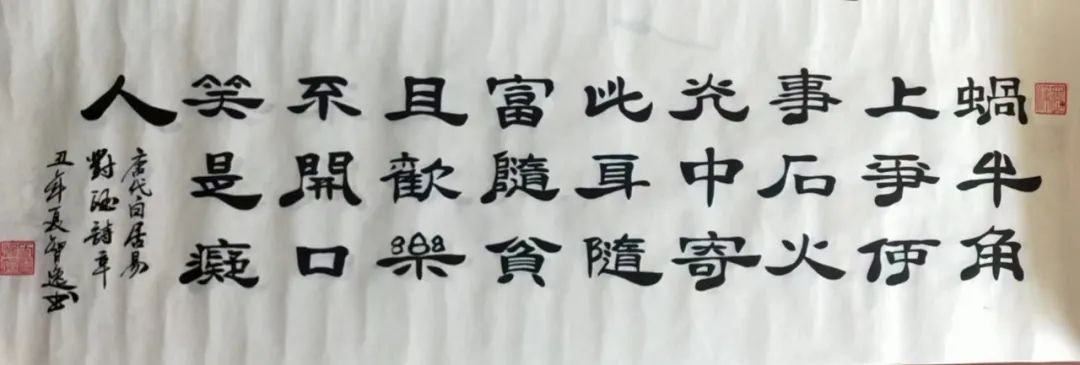 蝸牛角
上爭何
事石火
光中寄
此身隨
富隨貧
且歡樂
不開口
笑是癡
人
唐代白居易
對酒詩辛
丑年夏智逸書